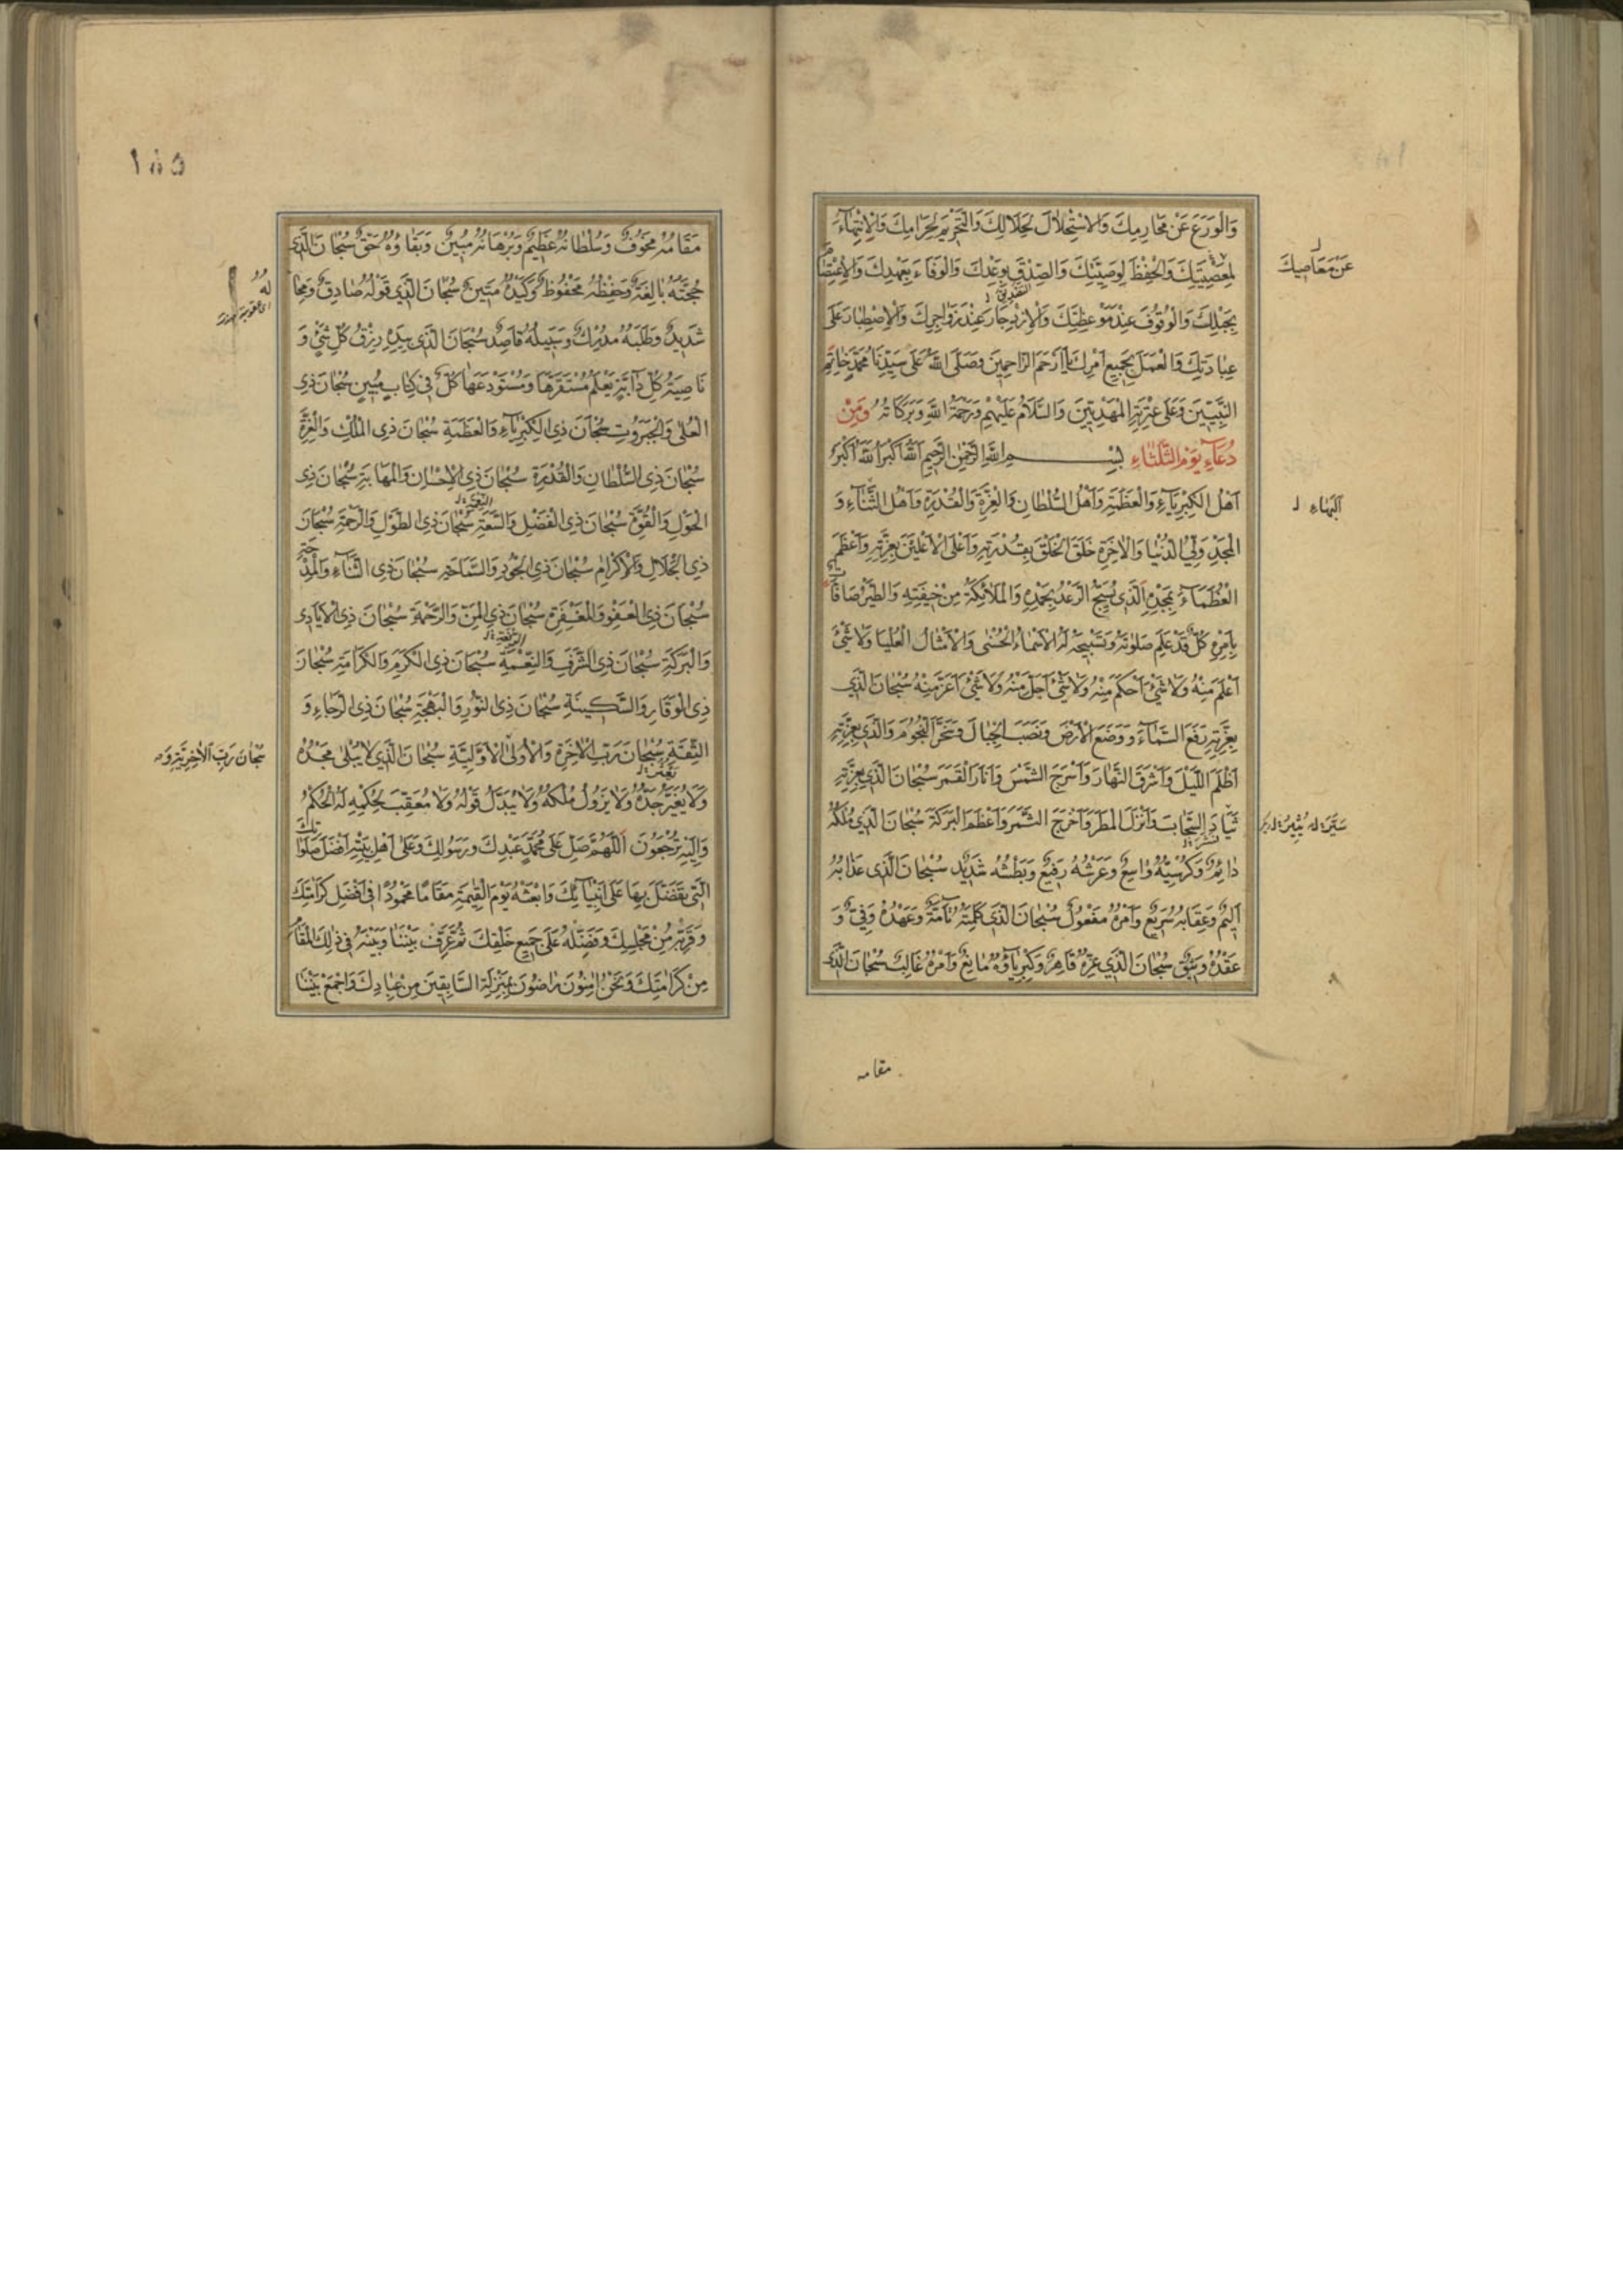 وَالْوَرَعَ عَنْ مَحَارِمِكَ وَالاسْتِحْلَالَ لِحَلَالِكَ وَالتَّحْرِيمَ لِحَرَامِكَ وَالاِنْتِهَآءَ
عَنْ مَعَاصِيكَ
لِمَعْصِيَتِكَ وَالْحِفْظَ لِوَصِيَّتِكَ وَالصِّدْقَ بِوَعْدِكَ وَالْوَفَاءَ بِعَهْدِكَ وَالاِعْتِصَامَ
بِحَبْلِكَ وَالْوُقُوفَ عِنْدَ مَوْعِظَتِكَ وَالاِزْدِجَارَ عِنْدَ زَوَاجِرِكَ وَالاِصْطِبَارَ عَلَى
عِبَادَتِكَ وَالْعَمَلَ بِجَمِيعِ اَمْرِكَ يَا اَرْحَمَ الرَّاحِمِينَ وَصَلَّى اللهُ عَلَى سَيِّدِنَا مُحَمَّدٍ خَاتَمِ
النَّبِيِّينَ وَعَلَى عِتْرَتِهِ الْمَهْدِيِّينَ وَالسَّلَامُ عَلَيْهِمْ وَرَحْمَةُ اللهِ وَبَرَكَاتُهُ وَمِنْ
دُعَآءِ يَوْمِ الثَّلَثَاءِ بِسْمِ اللهِ الرَّحْمٰنِ الرَّحِيمِ اَللهُ اَكْبَرُ اَللهُ اَكْبَرُ
اَهْلُ الْكِبْرِيَآءِ وَالْعَظَمَةِ وَاَهْلُ السُّلْطَانِ وَالْعِزَّةِ وَالْقُدْرَةِ وَاَهْلُ الثَّنَآءِ وَ
اَلْبَهَاءِ
الْمَجْدِ وَلِيُّ الدُّنْيَا وَالاٰخِرَةِ خَلَقَ الْخَلْقَ بِقُدْرَتِهِ وَاَعْلَى الاَعْلَيْنَ بِعِزَّتِهِ وَاَعْظَمَ
الْعُظَمَآءِ بِمَجْدِهِ اَلَّذِي يُسَبِّحُ الرَّعْدُ بِحَمْدِهِ وَالْمَلَائِكَةُ مِنْ خِيفَتِهِ وَالطَّيْرُ صَافَّاتٌ
بِاَمْرِهِ كُلٌّ قَدْ عَلِمَ صَلٰوتَهُ وَتَسْبِيحَهُ لَهُ الاَسْمَاءُ الْحُسْنٰى وَالاَمْثَالُ الْعُلْيَا وَلَا شَيْءَ
اَعْلَمُ مِنْهُ وَلَا شَيْءَ اَحْكَمُ مِنْهُ وَلَا شَيْءَ اَجَلُّ مِنْهُ وَلَا شَيْءَ اَعَزُّ مِنْهُ سُبْحَانَ الَّذِي
بِعِزَّتِهِ رَفَعَ السَّمَآءَ وَوَضَعَ الاَرْضَ وَنَصَبَ الْجِبَالَ وَسَخَّرَ النُّجُومَ وَالَّذِي بِعِزَّتِهِ
اَظْلَمَ اللَّيْلَ وَاَشْرَقَ النَّهَارَ وَاَسْرَجَ الشَّمْسَ وَاَنَارَ الْقَمَرَ سُبْحَانَ الَّذِي بِعِزَّتِهِ
السَّحَابَ وَاَنْزَلَ الْمَطَرَ وَاَخْرَجَ الثَّمَرَ وَاَعْظَمَ الْبَرَكَةَ سُبْحَانَ الَّذِي مُلْكُهُ
دَائِمٌ وَكُرْسِيُّهُ وَاسِعٌ وَعَرْشُهُ رَفِيعٌ وَبَطْشُهُ شَدِيدٌ سُبْحَانَ الَّذِي عَذَابُهُ
اَلِيمٌ وَعِقَابُهُ سَرِيعٌ وَاَمْرُهُ مَفْعُولٌ سُبْحَانَ الَّذِي كَلِمَتُهُ تَآمَّةٌ وَعَهْدُهُ وَفِيٌّ وَ
عَقْدُهُ وَثِيقٌ سُبْحَانَ الَّذِي عِزُّهُ قَاهِرٌ وَكِبْرِيَآؤُهُ مَانِعٌ وَاَمْرُهُ غَالِبٌ سُبْحَانَ الَّذِي
مقامه
١٥٥
مَقَامُهُ مَخُوفٌ وَسُلْطَانُهُ عَظِيمٌ وَبُرْهَانُهُ مُبِينٌ وَبَقَاؤُهُ حَقٌّ سُبْحَانَ الَّذِي
حُجَّتُهُ بَالِغَةٌ وَحِفْظُهُ مَحْفُوظٌ وَكَيْدُهُ مَتِينٌ سُبْحَانَ الَّذِي قَوْلُهُ صَادِقٌ وَمِحَا
شَدِيدٌ وَطَلَبُهُ مُدْرِكٌ وَسَبِيلُهُ قَاصِدٌ سُبْحَانَ الَّذِي بِيَدِهِ رِزْقُ كُلِّ شَيْءٍ وَ
نَاصِيَةُ كُلِّ دَآبَّةٍ يَعْلَمُ مُسْتَقَرَّهَا وَمُسْتَوْدَعَهَا كُلٌّ فِي كِتَابٍ مُبِينٍ سُبْحَانَ ذِي
الْعُلٰى وَالْجَبَرُوتِ سُبْحَانَ ذِي الْكِبْرِيَآءِ وَالْعَظَمَةِ سُبْحَانَ ذِي الْمُلْكِ وَالْعِزَّةِ
سُبْحَانَ ذِي السُّلْطَانِ وَالْقُدْرَةِ سُبْحَانَ ذِي الاِحْسَانِ وَالْمَهَابَةِ سُبْحَانَ ذِي
الْحَوْلِ وَالْقُوَّةِ سُبْحَانَ ذِي الْفَضْلِ وَالسَّعَةِ سُبْحَانَ ذِي الطَّوْلِ وَالرَّحْمَةِ سُبْحَانَ
ذِي الْجَلَالِ وَالاِكْرَامِ سُبْحَانَ ذِي الْجُودِ وَالسَّمَاحَةِ سُبْحَانَ ذِي الثَّنَآءِ وَالْمِدْحَةِ
سُبْحَانَ ذِي الْعَفْوِ وَالْمَغْفِرَةِ سُبْحَانَ ذِي الْمَنِّ وَالرَّحْمَةِ سُبْحَانَ ذِي الاَيَادِي
وَالْبَرَكَةِ سُبْحَانَ ذِي الشَّرَفِ وَالنِّعْمَةِ سُبْحَانَ ذِي الْكَرَمِ وَالْكَرَامَةِ سُبْحَانَ
ذِي الْوَقَارِ وَالسَّكِينَةِ سُبْحَانَ ذِي النُّورِ وَالْبَهْجَةِ سُبْحَانَ ذِي الرَّجَاءِ وَ
الثِّقَةِ سُبْحَانَ رَبِّ الاٰخِرَةِ وَالاُولٰى الاَوَّلِيَّةِ سُبْحَانَ الَّذِي لَا يَبْلٰى مَجْدُهُ
سُبْحَانَ رَبِّ الاٰخِرِيَّةِ
وَلَا يُغَيَّرُ جَدُّهُ وَلَا يَزُولُ مُلْكُهُ وَلَا يُبَدَّلُ قَوْلُهُ وَلَا مُعَقِّبَ لِحُكْمِهِ لَهُ الْحُكْمُ
وَاِلَيْهِ تُرْجَعُونَ اَللّٰهُمَّ صَلِّ عَلَى مُحَمَّدٍ عَبْدِكَ وَرَسُولِكَ وَعَلَى اَهْلِ بَيْتِهِ اَفْضَلَ صَلَوَاتِكَ
الَّتِي تَفَضَّلَ بِهَا عَلَى اَنْبِيَآئِكَ وَابْعَثْهُ يَوْمَ الْقِيٰمَةِ مَقَامًا مَحْمُودًا فِي اَفْضَلِ كَرَامَتِكَ
وَقَرِّبْهُ مِنْ مَجْلِسِكَ وَفَضِّلْهُ عَلَى جَمِيعِ خَلْقِكَ ثُمَّ عَرِّفْ بَيْنَنَا وَبَيْنَهُ فِي ذٰلِكَ الْمَقَامِ
مِنْ كَرَامَتِكَ وَنَحْنُ اٰمِنُونَ رَاضُونَ بِمَنْزِلَةِ السَّابِقِينَ مِنْ عِبَادِكَ وَاجْمَعْ بَيْنَنَا